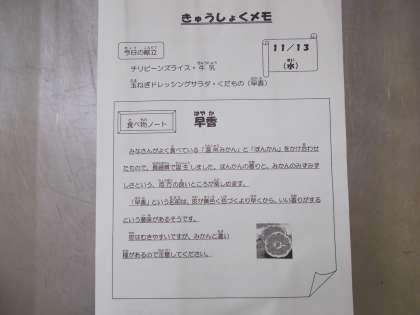 きゅうしょくメモ
今日の献立
11/13
(水)
チリビーンズライス・牛乳
玉ねぎドレッシングサラダ・くだもの(早香)
食べ物ノート
はやか
早香
みなさんがよく食べている「温州みかん」と「ぽんかん」をかけ合わせ
たもので、長崎県で誕生しました。ぽんかんの香りと、みかんのみずみず
しさという、双方の良いところが楽しめます。
「早香」という名前は、皮が黄色く色づくより早くから、いい香りがする
という意味があるそうです。
皮はむきやすいですが、みかんと違い
種があるので注意してください。